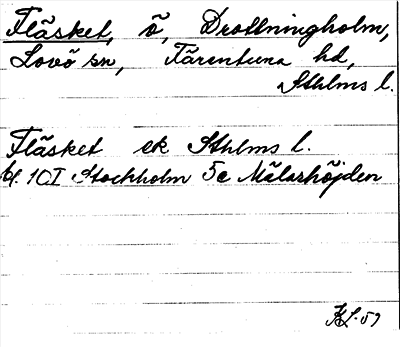 Fläsket, ö, Drottningholm,
Lovö sn, Färentuna hd,
Sthlms l.
Fläsket ek Sthlms l.
bl. 10 I Stockholm 5c Mälarhöjden
KL-59